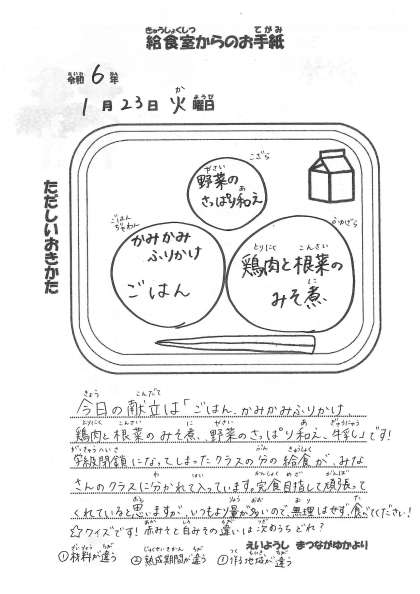 給食室からのお手紙
令和 6 年
1月23日 火 曜日
ただしいおきかた
こざら
野菜の
さっぱり和え
ごはん
ぢゃわん
かみかみ
ふりかけ
ごはん
ふかざら
鶏肉と根菜の
みそ煮
今日の献立は「ごはん、かみかみふりかけ、
鶏肉と根菜のみそ煮、野菜のさっぱり和え、牛乳」です!
学級閉鎖になってしまったクラスの分の給食が、みな
さんのクラスに分かれて入っています。完食目指して頑張って
くれていると思いますが、いつもより量が多いので無理はせず、食べてください!
☆クイズです!赤みそと白みその違いは次のうちどれ?
えいようし まつながゆかより
①材料が違う ②熟成期間が違う ③作る地域が違う